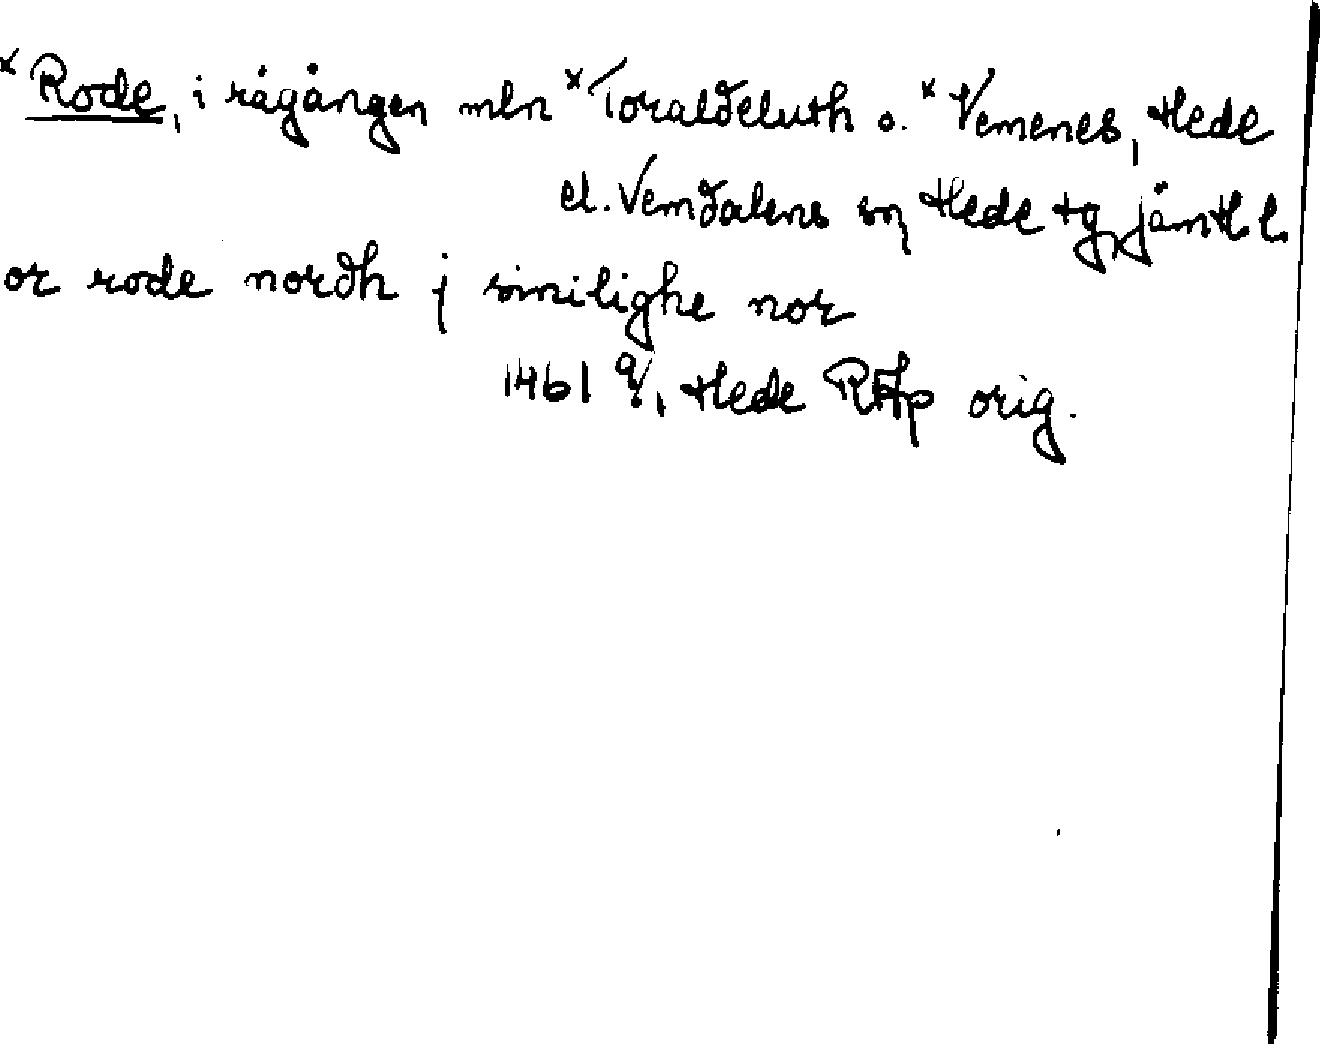 × Rode, i rågången mln × Toraldeluth o. × Vemenes, Hede
el. Vemdalens sn Hede tg, Jämtl. l.
or rode nordh j sinilighe nor
1461 9/1 Hede RAp orig.